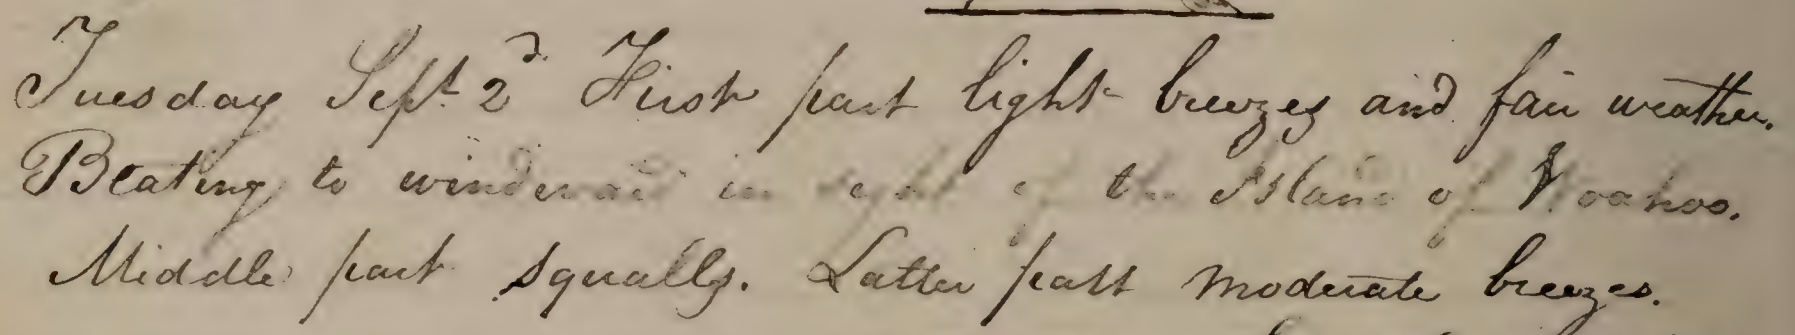 Tuesday Sept 2d First part light breezes and fair weather.
Beating to windward in sight of the Island of Woahoo.
Middle part squally. Latter part moderate breezes.